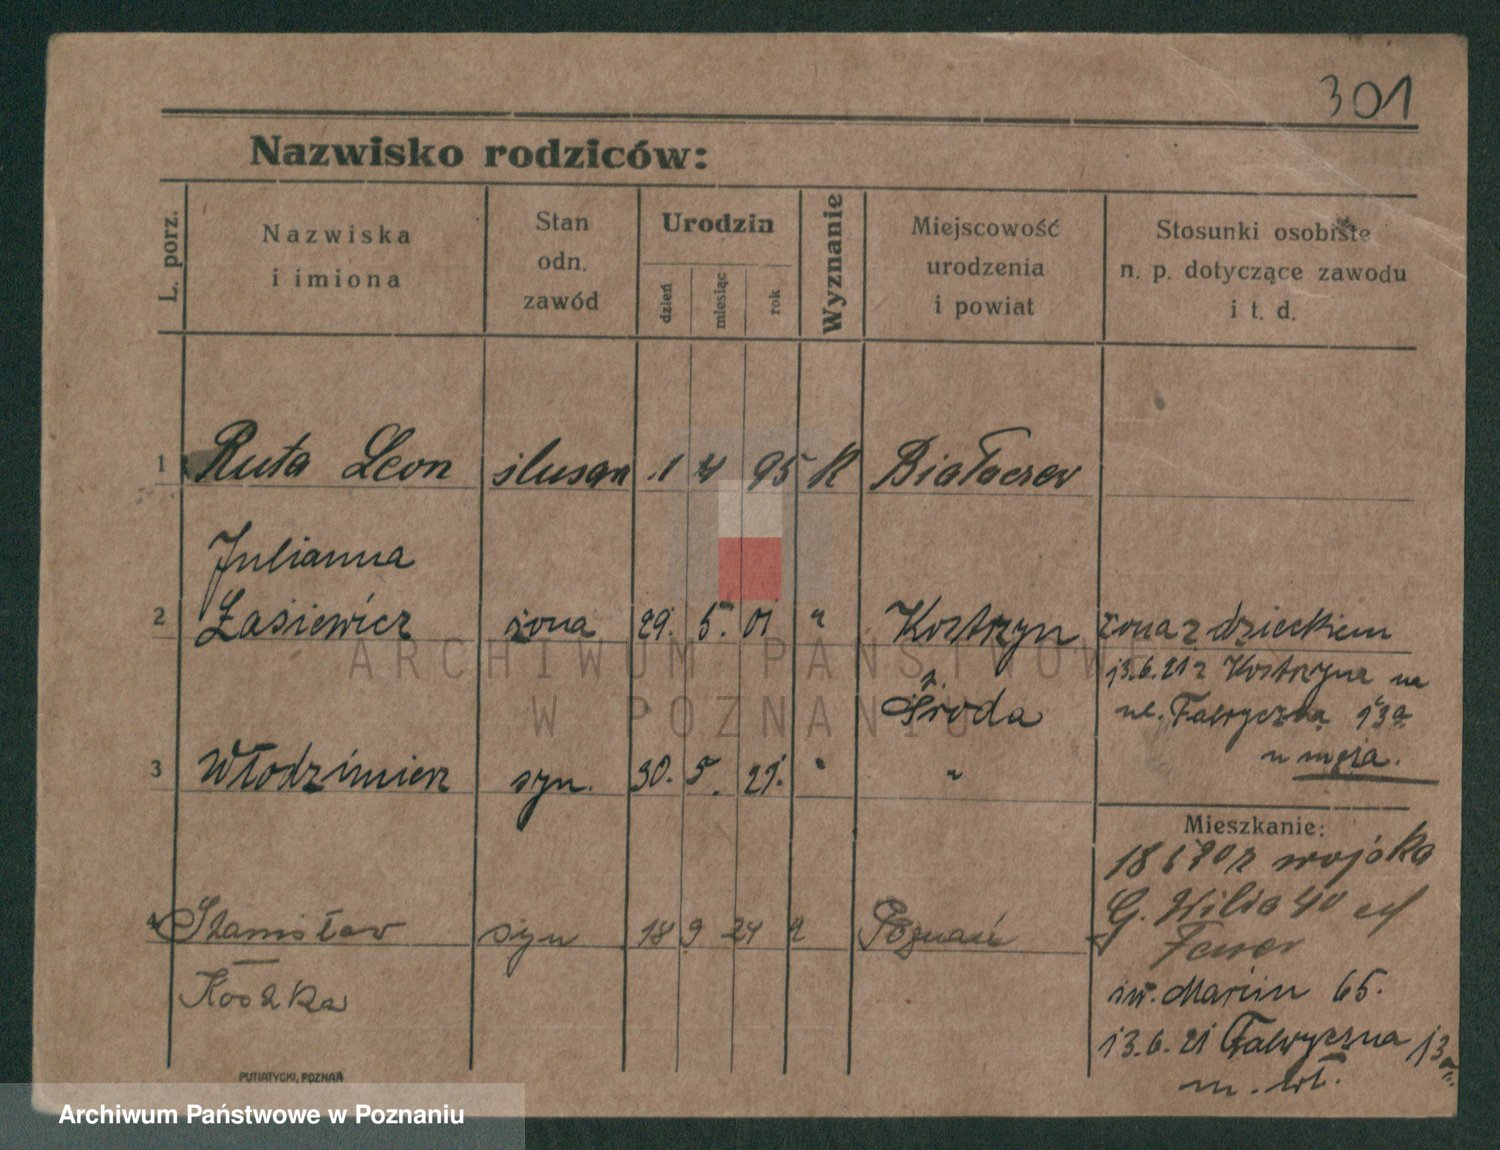 301
Nazwisko rodziców:
L. porz.
Nazwiska
i imiona
Stan
odn.
zawód
Urodzin
dzień
miesiąc
rok
Wyznanie
Miejscowość
urodzenia
i powiat
Stosunki osobiste
n. p. dotyczące zawodu
i t. d.
1 Ruta Leon ślusarz 1 4 95 K Białaczew
Julianna
2 Łasiewicz żona 29. 5. 01 " Kostrzyn żona z dzieckiem
13.6.21 z Kostrzyna na
p. Środa ul. Fabryczna 13a
u męża.
3 Włodzimierz syn. 30. 5. 21. " "
Mieszkanie:
z wojska
G. Wilda 40
4 Stanisław syn 18 9 24 Poznań
Kostka
św. Marcin 65.
13.6.21 Fabryczna 13a
m. wł.
PUTIATYCKI, POZNAŃ
ARCHIWUM PAŃSTWOWE
W POZNANIU
Archiwum Państwowe w Poznaniu